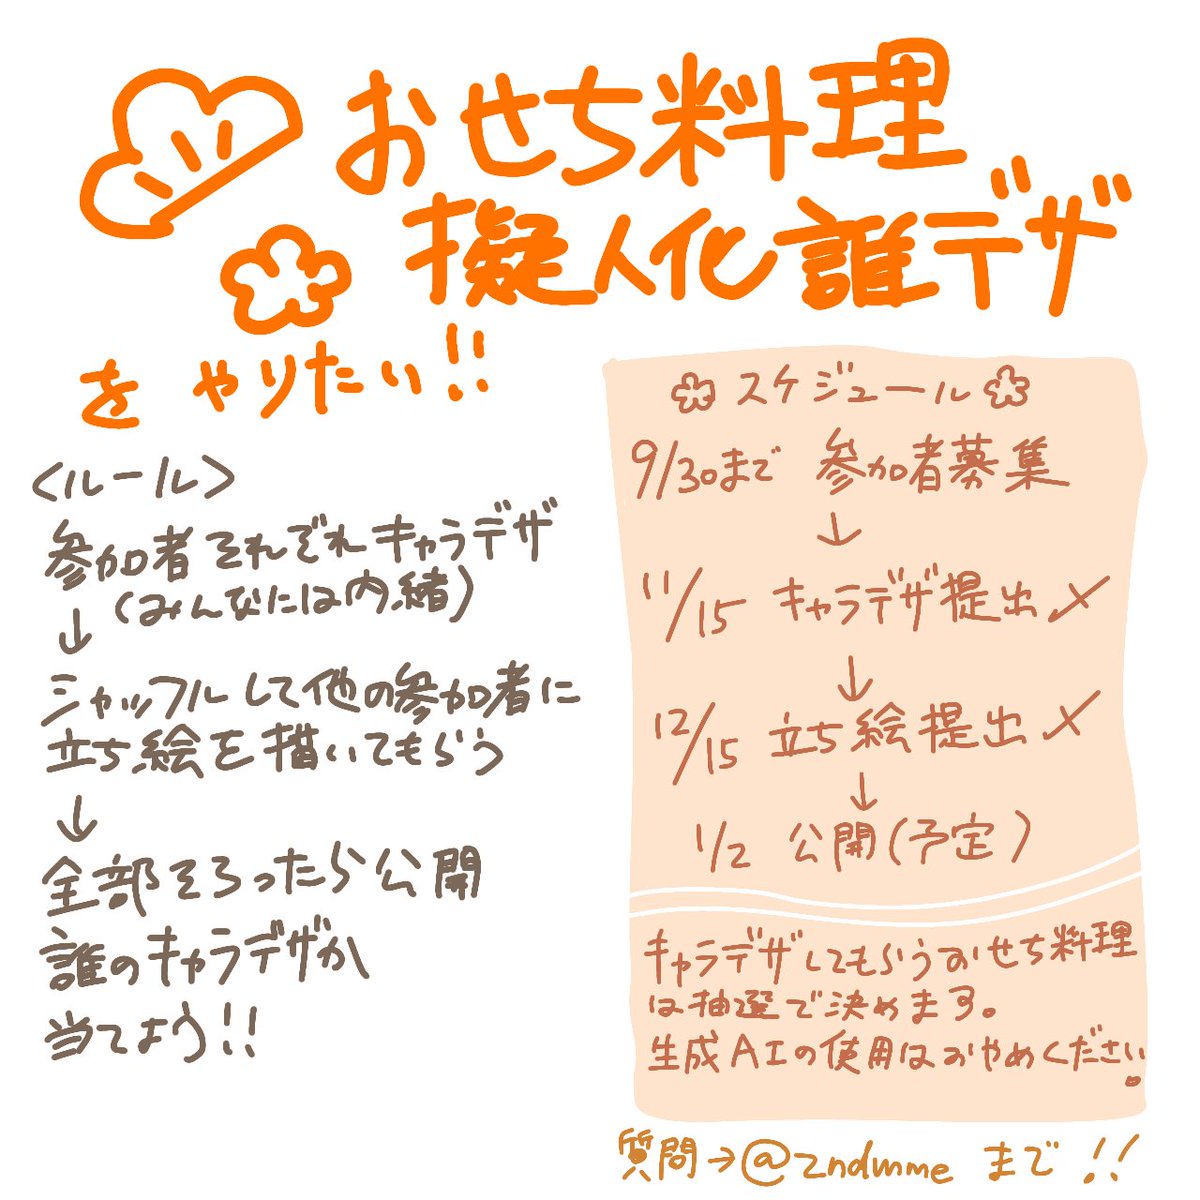 おせち料理
擬人化誰デザ
をやりたい!!
<ルール>
参加者それぞれキャラデザ
(みんなには内緒)
↓
シャッフルして他の参加者に
立ち絵を描いてもらう
↓
全部そろったら公開
誰のキャラデザか
当てよう!!
スケジュール
9/30まで 参加者募集
↓
11/15 キャラデザ提出〆
↓
12/15 立ち絵提出〆
↓
1/2 公開(予定)
キャラデザしてもらうおせち料理
は抽選で決めます。
生成AIの使用はおやめください。
質問→@2ndmme まで!!